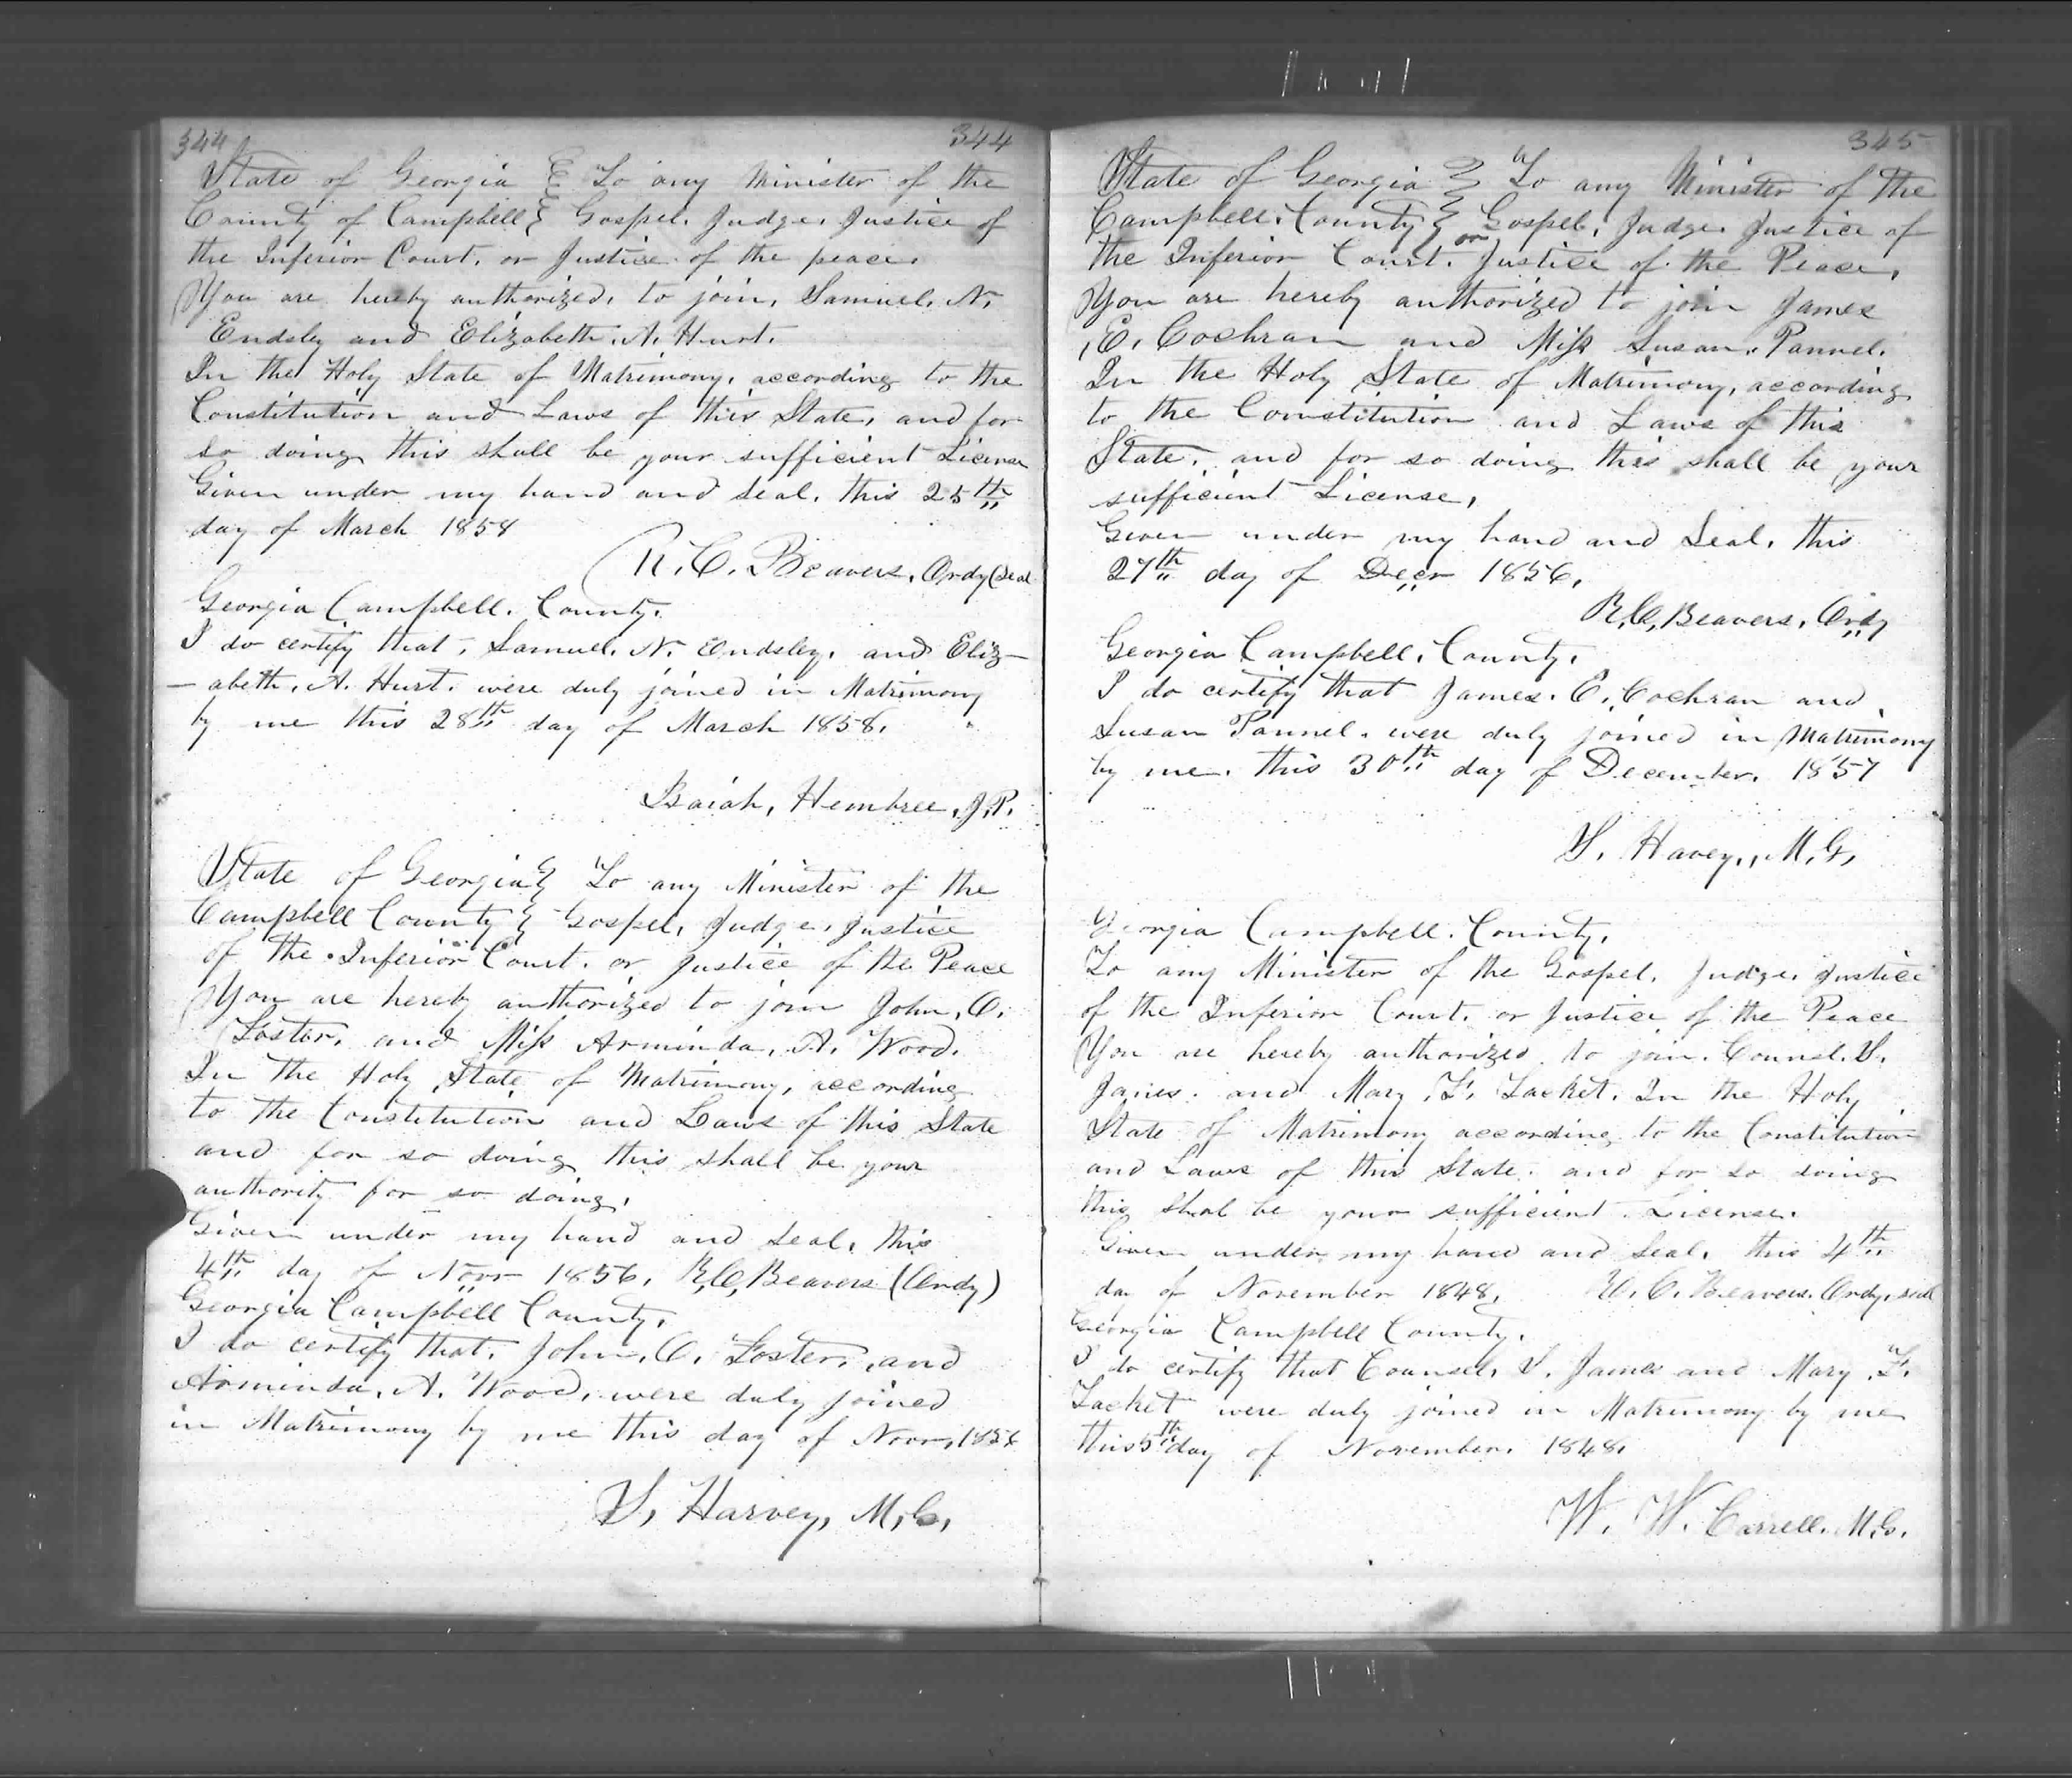 344 344
State of Georgia } To any Minister of the
County of Campbell } Gospel. Judge. Justice of
the Inferior Court. or Justice of the peace.
You are hereby authorized. to join, Samuel. N.
Endsley and Elizabeth. A. Hurt.
In the Holy State of Matrimony, according to the
Constitution and Laws of this State, and for
so doing this shall be your sufficient License
Given under my hand and seal. this 25th
day of March 1858
R. C. Beavers, Ordy (Seal
Georgia Campbell. County.
I do certify that, Samuel. N. Endsley. and Eliz-
-abeth. A. Hurt. were duly joined in Matrimony
by me this 28th day of March 1858.
Isaiah, Hembree, J.P.
State of Georgia } To any Minister of the
Campbell County } Gospel, Judge, Justice
of the Inferior Court. or Justice of the Peace
You are hereby authorized to join John, C.
Foster, and Miss Arminda, A. Wood.
In the Holy State of Matrimony, according
to the Constitution and Laws of this State
and for so doing this shall be your
authority for so doing.
Given under my hand and seal, this
4th day of Novr 1856, R,C, Beavers (Ordy)
Georgia Campbell County.
I do certify that. John, C. Foster, and
Arminda, A. Wood, were duly joined
in Matrimony by me this day of Novr, 1856
S, Harvey, M,G,
345
State of Georgia } To any Minister of the
Campbell. County } Gospel, Judge. Justice of
the Inferior Court. or Justice of the Peace,
You are hereby authorized to join James
E. Cochran and Miss Susan. Pannel.
In the Holy State of Matrimony, according
to the Constitution and Laws of this
State, and for so doing this shall be your
sufficient License,
Given under my hand and Seal, this
27th day of Decr 1856,
R,C, Beavers, Ordy
Georgia Campbell, County.
I do certify that James. E. Cochran and
Susan Pannel. were duly joined in Matrimony
by me. this 30th day of December. 1857
S. Havey,, M.G,
Georgia Campbell. County,
To any Minister of the Gospel. Judge. Justice
of the Inferior Court. or Justice of the Peace
You are hereby authorized to join. Counsel. S.
James. and Mary. F. Lacket. In the Holy
State of Matrimony according to the Constitution
and Laws of this State. and for so doing
this shal be your sufficient License.
Given under my hand and Seal. this 4th
day of November 1848, R. C. Beavers. Ordy, seal
Georgia Campbell County.
I do certify that Counsel. S. James and Mary. F.
Lacket were duly joined in Matrimony by me
this 5th day of November. 1848.
W. W. Carrell. M.G.